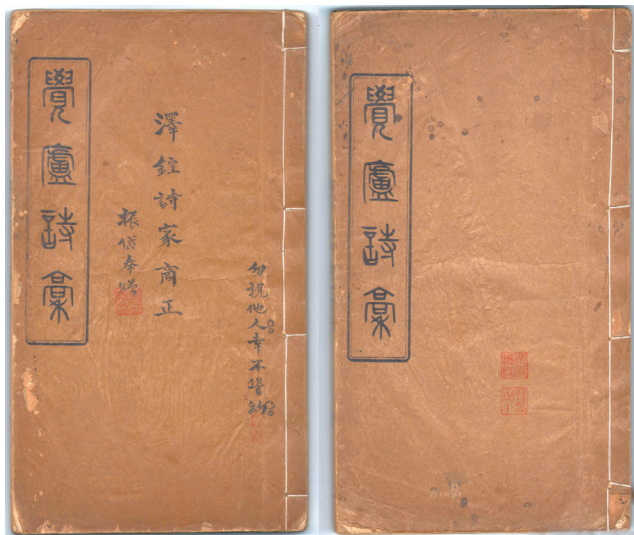 覺廬詩稾
澤詩家商正
振岱奉贈
勿視他人幸不
覺廬詩稾